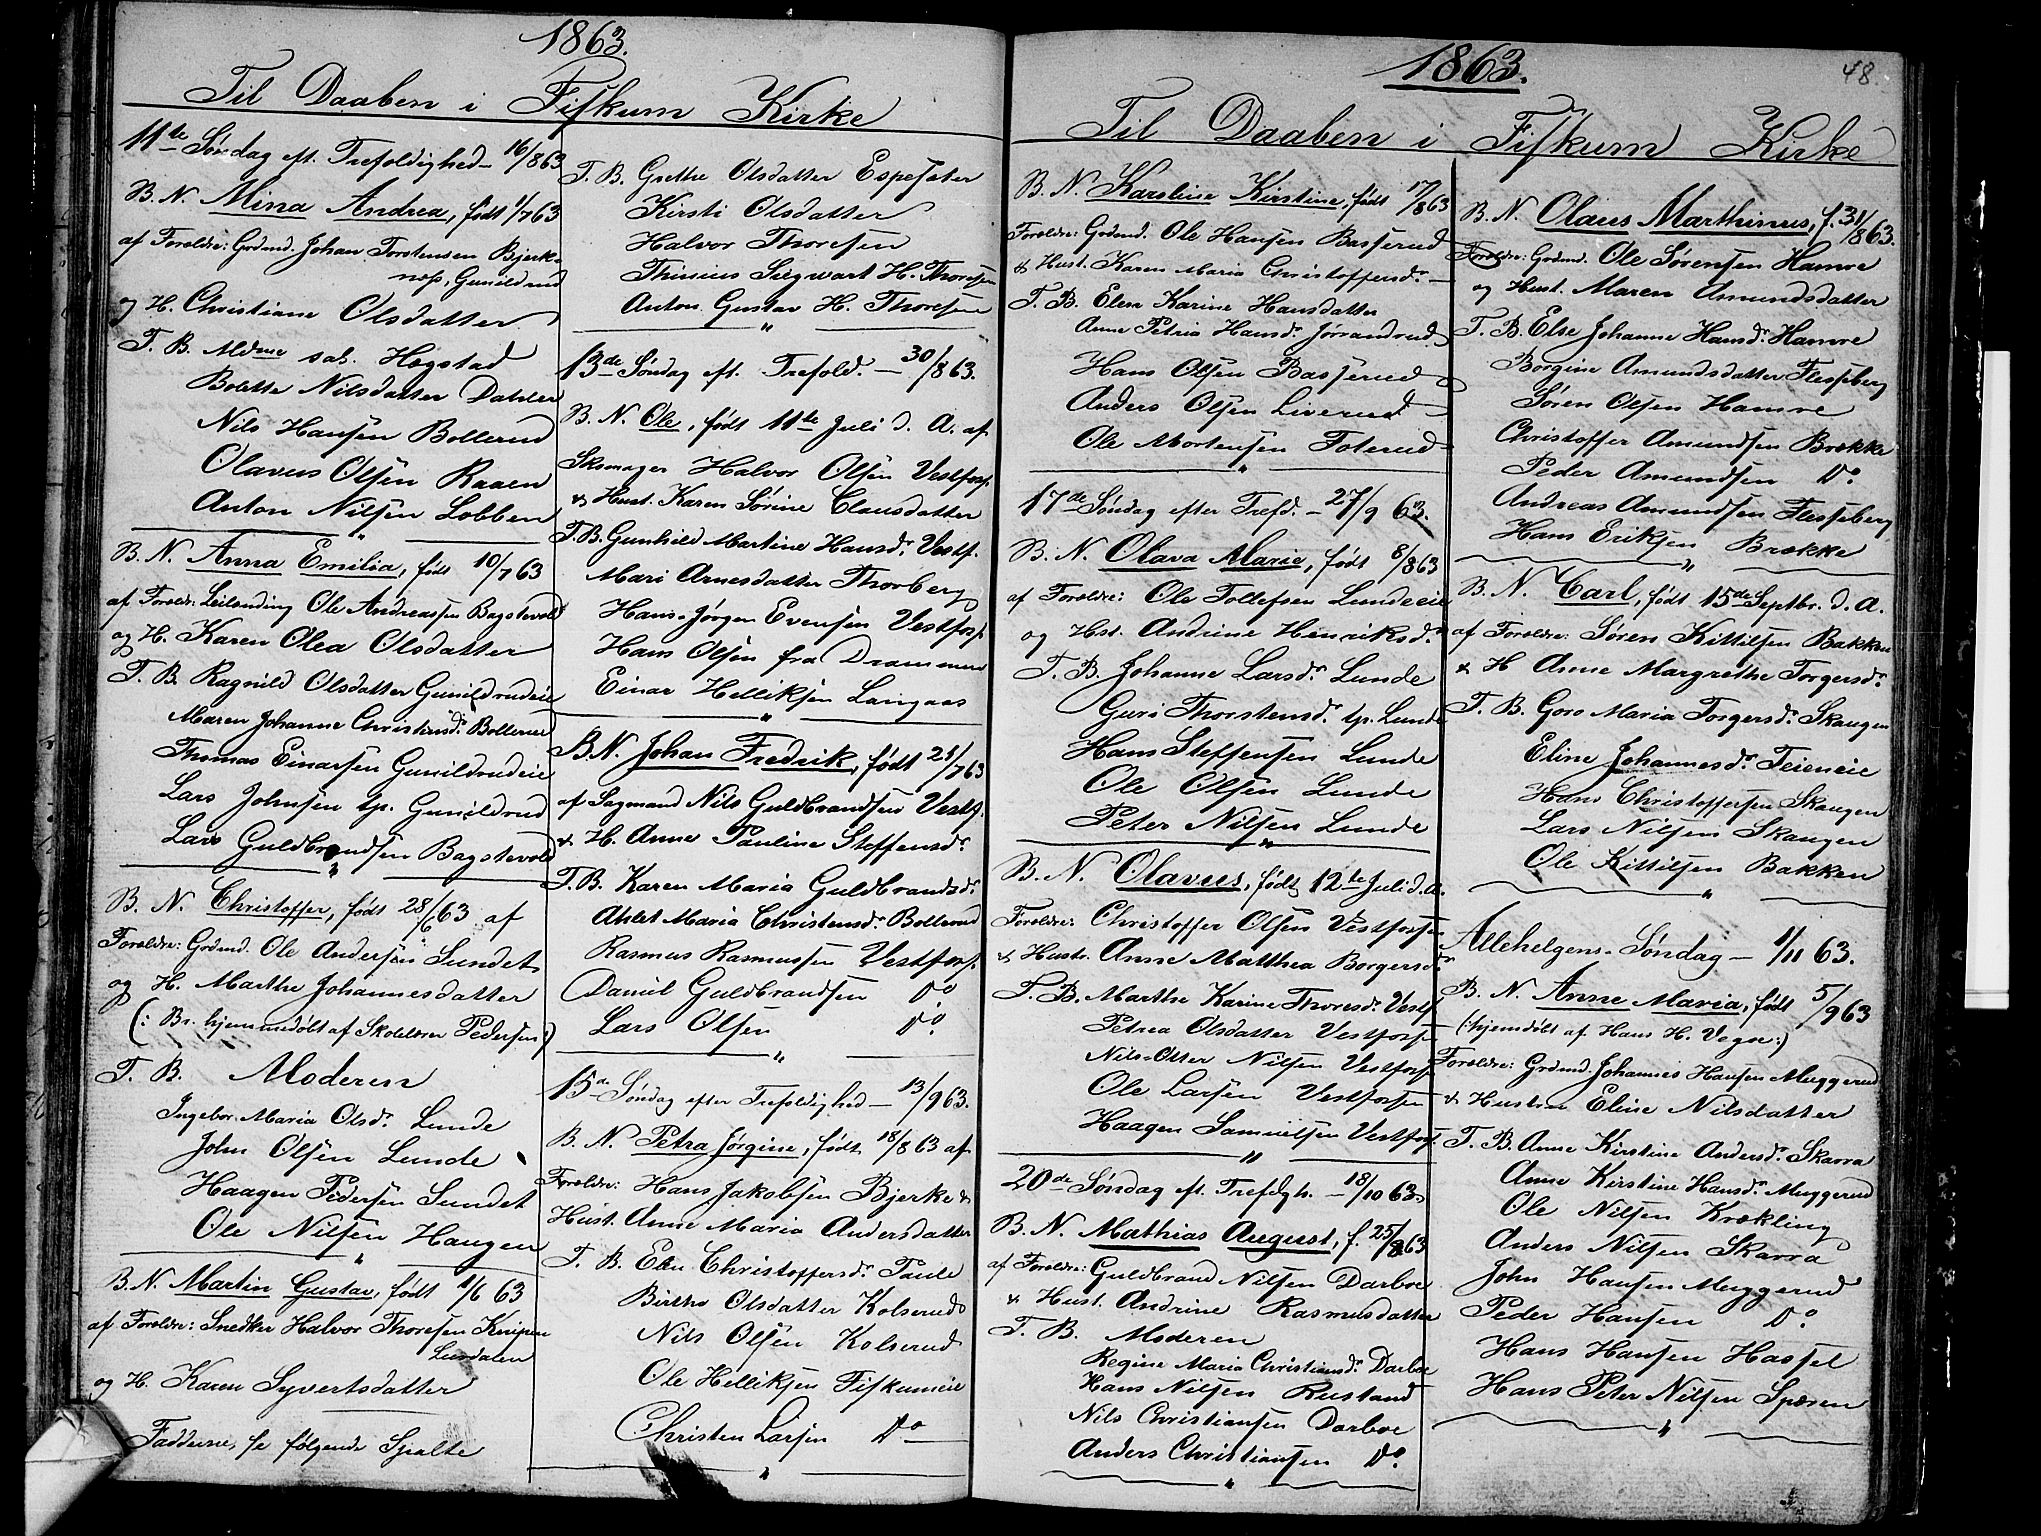 1863.
Til Daaben i Fiskum Kirke
11te Søndag eft. Trefoldighed - 16/8 63
B. N. Mina Andrea, født 1/7 63
af Foreldre: Grdmd. Johan Torstensen Bjerk-
næs, Gunildrud
og H. Christiane Olsdatter
T. B. Mdme sal. Hegstad
Bolette Nilsdatter Dahler
Nils Hansen Bollerud
Olavus Olsen Raaen
Anton Nilsen Lobben
B. N. Anna Emilia, født 10/7 63
af Foreldre: Leilending Ole Andreassen Bagstevold
og H. Karen Olea Olsdatter
T. B. Ragnild Olsdatter Gunildrudeie
Maren Johanne Christensd. Bollerud
Thomas Einarsen Gunildrudeie
Lars Johnsen tp. Gunildrud
Lars Guldbrandsen Bagstevold
B. N. Christoffer, født 28/6 63 af
Foreldre: Grdmd. Ole Andersen Sundet
og H. Marthe Johannesdatter
(: Br. hjemmedøbt af Skolelærer Pedersen)
T. B. Moderen
Ingebor. Maria Olsd. Lunde
John Olsen Lunde
Haagen Pedersen Sundet
Ole Nilsen Haugen
B. N. Martin Gustav, født 1/6 63
af Foreldre: Snedker Halvor Thoresen Knipen
Lurdalen
og H. Karen Syvertsdatter
Fadderne, se følgende Spalte
T. B. Grethe Olsdatter Espeseter
Kirsti Olsdatter
Halvor Thoresen
Thinius Siegwart H. Thoresen
Anton Gustav H. Thoresen
13de Søndag eft. Trefold. - 30/8 63.
B. N. Ole, født 11te Juli d. A. af
Skomager Halvor Olsen Vestfos.
& Hust. Karen Sørine Clausdatter
T. B. Gunhild Martine Hansd. Vestf.
Mari Arnesdatter Thorberg
Hans-Jørgen Evensen Vestfos.
Hans Olsen fra Drammen
Einar Helliksen Langaas
B. N. Johan Fredrik, født 21/7 63
af Sagmand Nils Guldbrandsen Vestf.
& H. Anne Pauline Steffensd.
T. B. Karen Maria Guldbrandsd.
Ahlet Maria Christensd. Bollerud
Rasmus Rasmussen Vestfos.
Daniel Guldbrandsen Do
Lars Olsen Do.
15de Søndag efter Trefoldighed - 13/9 63.
B. N. Petra Jørgine, født 18/8 63 af
Foreldre: Hans Jakobsen Bjerke &
Hust. Anne Maria Andersdatter
T. B. Elen Christoffersd. Paule
Birthe Olsdatter Kolserud
Nils Olsen Kolserud
Ole Helliksen Fiskumeie
Christen Larsen Do
1863.
48.
Til Daaben i Fiskum Kirke
B. N. Karoline Kirstine, født 17/8 63
Foreldre: Grdmd. Ole Hansen Basserud
& Hust. Karen Maria Christoffersd.
T. B. Elen Karine Hansdatter
Anne Petria Hansd. Jørrandrud
Hans Olsen Basserud
Anders Olsen Liverud
Ole Mortensen Foterud
17de Søndag efter Trefd. - 27/9 63.
B. N. Olava Marie, født 8/8 63
af Foreldre: Ole Tollefsen Lundeeie
og Hst. Andrine Henriksd.
T. B. Johanne Larsd. Lunde
Guri Thorstensd. tp. Lunde
Hans Steffensen Lunde
Ole Olsen Lunde
Peter Nilsen Lunde
B. N. Olavus, født 12te Juli d. A.
Foreldre: Christoffer Olsen Vestfossen
& Hustr. Anne Matthea Borgersd.
T. B. Marthe Karine Thoresd. Vestf.
Petrea Olsdatter Vestfossen
Nils-Otter Nilsen Vestfos.
Ole Larsen Vestfossen
Haagen Samuelsen Vestfos.
20de Søndag eft. Trefdgh. - 18/10 63.
B. N. Mathias August, f. 25/8 63
af Foreldre: Guldbrand Nilsen Darboe
& Hust. Andrine Rasmusdatter
T. B. Moderen
Regine Maria Christiansd. Darboe
Hans Nilsen Rustand
Nils Christiansen Darboe
Anders Christiansen Do.
B. N. Olaus Marthinus, f. 31/8 63.
Foreldre: Grdmd. Ole Sørensen Hamre
og Hust. Maren Amundsdatter
T. B. Else Johanne Hansd. Hamre
Borgine Amundsdatter Flesseberg
Søren Olsen Hamre
Christoffer Amundsen Brække
Peder Amundsen Do.
Andreas Amundsen Flesseberg
Hans Eriksen Brække
B. N. Carl, født 15de Septbr. d. A.
af Foreldre: Søren Kittilsen Bakken
& H Anne Margrethe Torgersd.
T. B. Goro Maria Torgersd. Skaugen
Eline Johannesd. Teieneie
Hans Christoffersen Skaugen
Lars Nilsen Skaugen
Ole Kittilsen Bakken
Allehelgens-Søndag - 1/11 63.
B. N. Anne Maria, født 5/9 63
(: hjemdøbt af Hans H. Vego :)
Foreldre: Grdmd. Johannes Hansen Muggerud
& Hustru Eline Nilsdatter
T. B. Anne Kirstine Andersd. Skarra
Anne Kirstine Hansd. Muggerud
Ole Nilsen Krekling
Anders Nilsen Skarra
John Hansen Muggerud
Peder Hansen Do.
Hans Hansen Hassel
Hans Peter Nilsen Speren